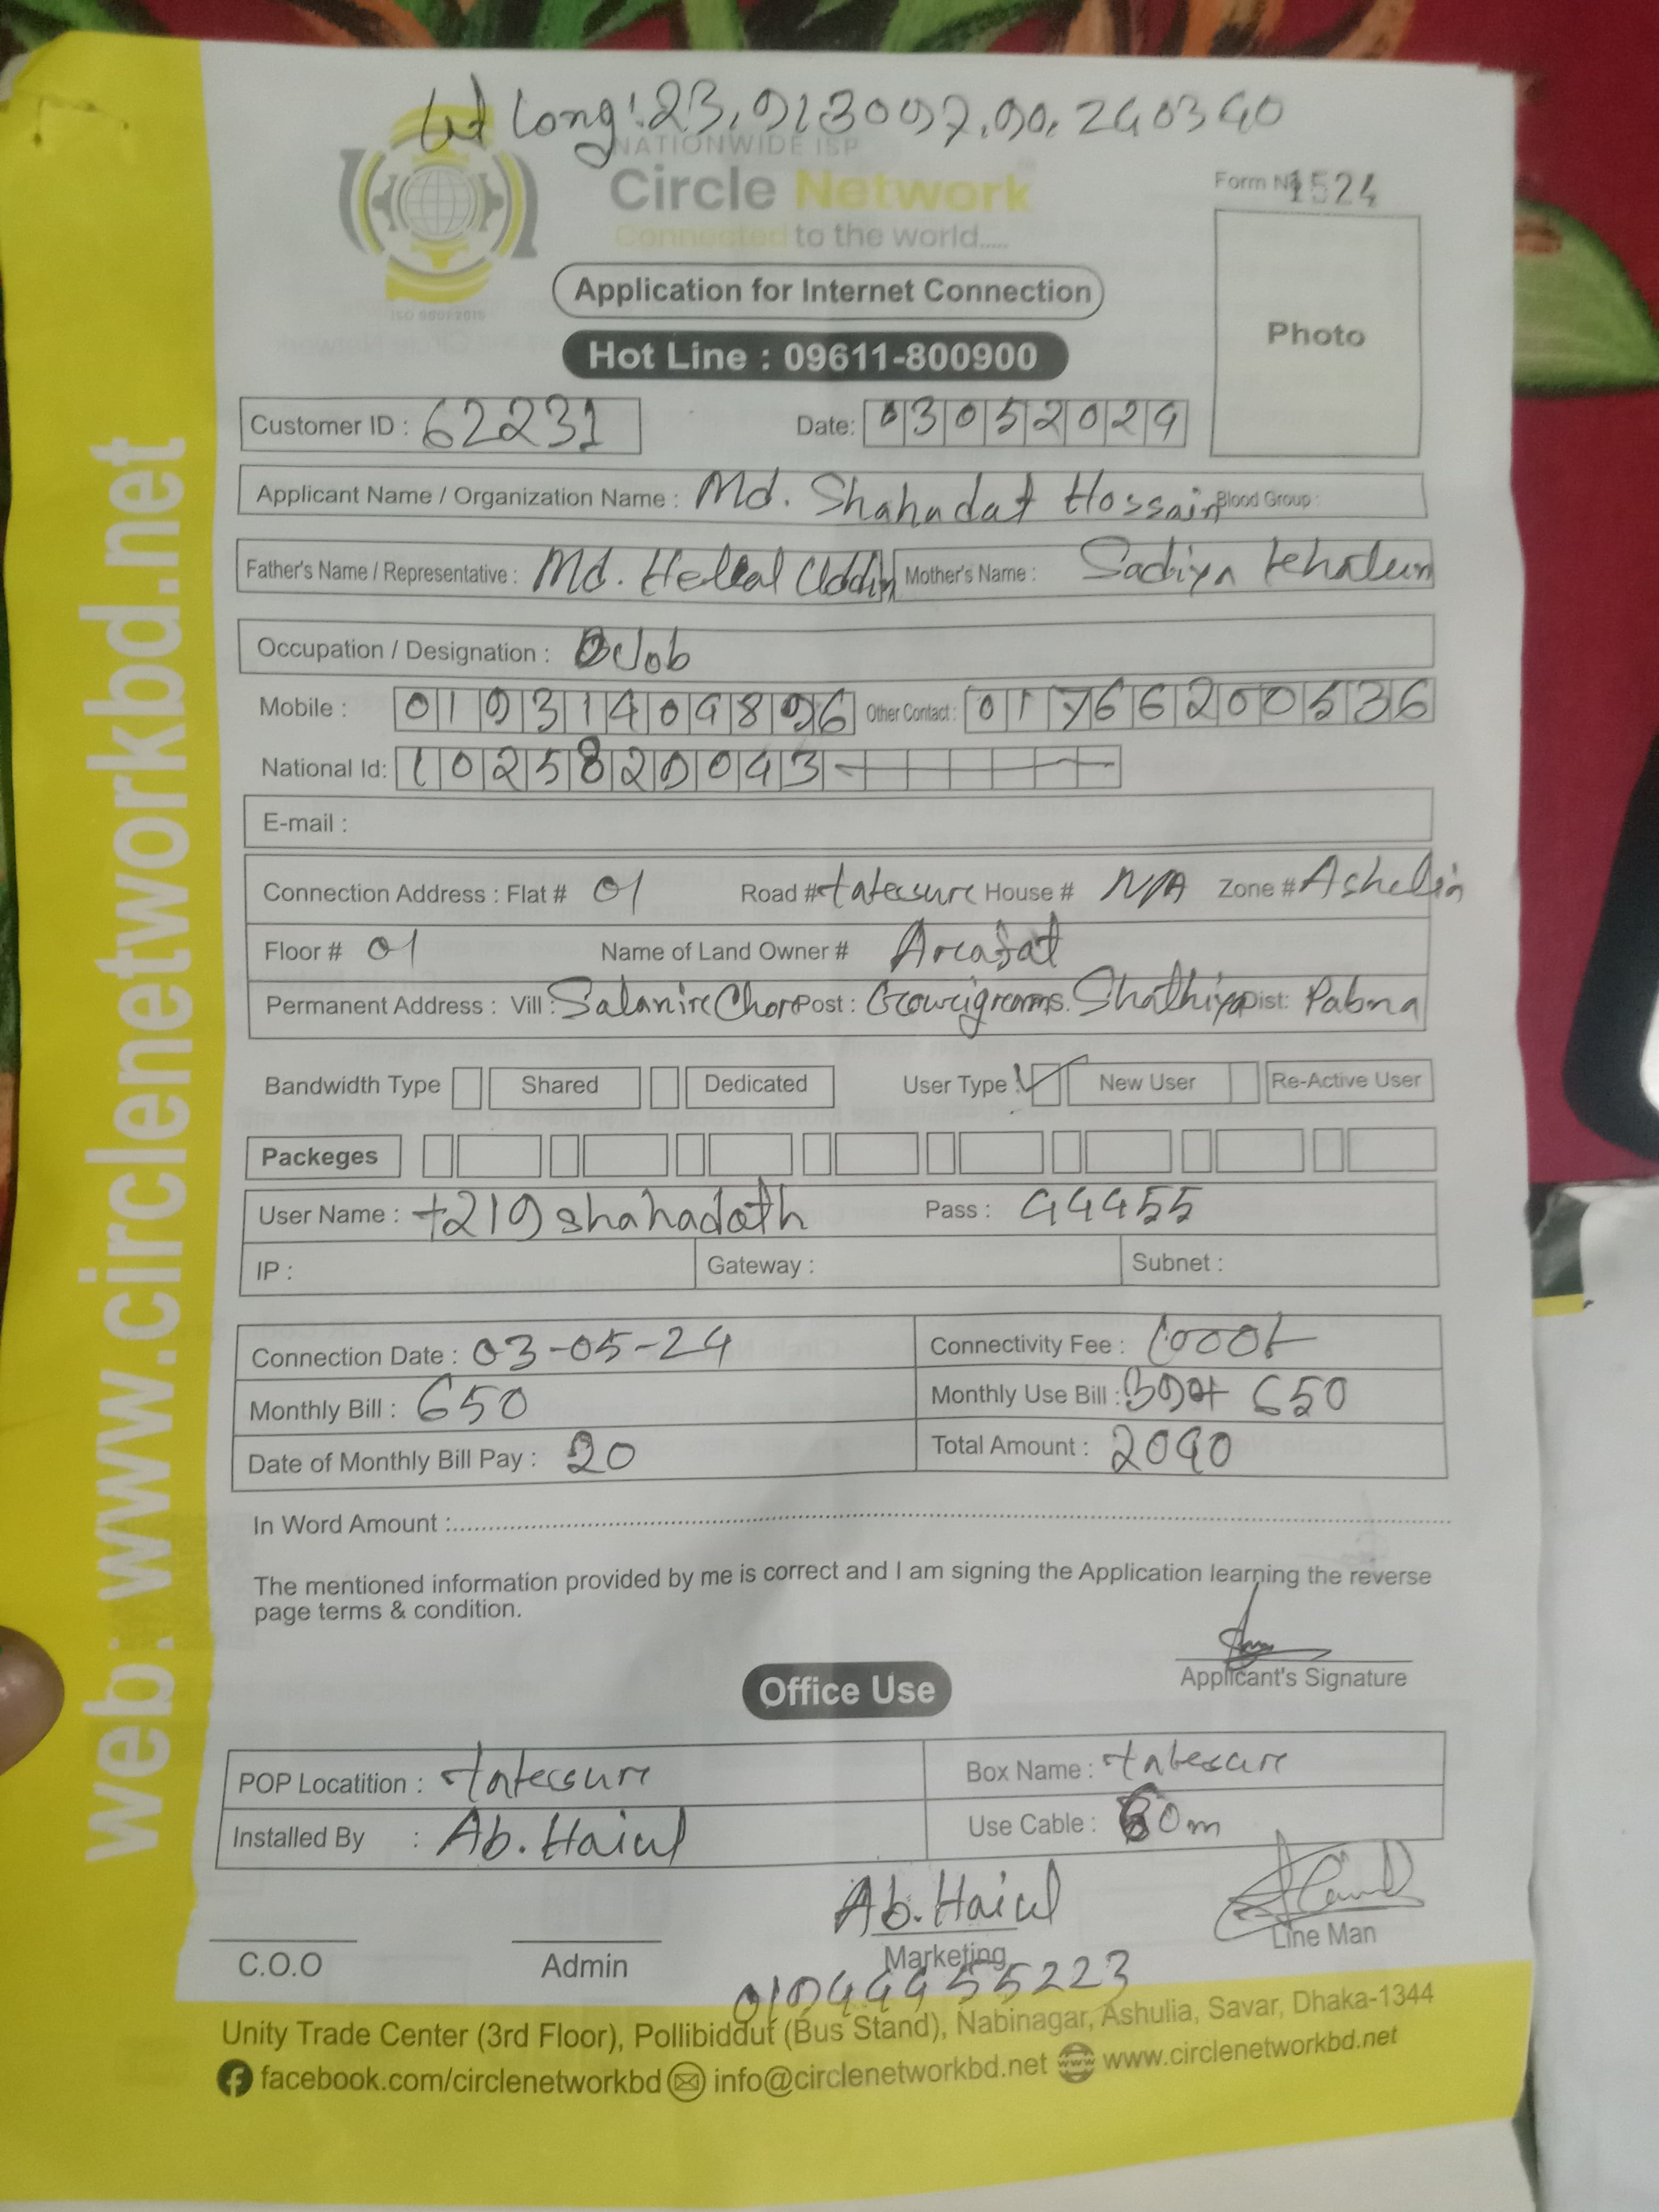 Lat Long: 23.913097.90.240340
NATIONWIDE ISP
Circle Network
Connected to the world.....
ISO 9001:2015
Form No 1524
Application for Internet Connection
Photo
Hot Line : 09611-800900
Customer ID : 62231 Date: 03052024
Applicant Name / Organization Name : Md. Shahadat Hossain Blood Group :
Father's Name / Representative : Md. Helal Uddin Mother's Name : Sadiya
Occupation / Designation : Job
Mobile : 01931409896 Other Contact : 01766200536
National Id: 1025829043
E-mail :
Connection Address : Flat # 01 Road # House # N/A Zone # Ashulia
Floor # 01 Name of Land Owner # Arafat
Permanent Address : Vill : Post : P.S. Shathiya Dist: Pabna
Bandwidth Type Shared Dedicated User Type : New User Re-Active User
Packeges
User Name : t219shahadath Pass : 44455
IP : Gateway : Subnet :
Connection Date : 03-05-24 Connectivity Fee : 1000/-
Monthly Bill : 650 Monthly Use Bill : 390+ 650
Date of Monthly Bill Pay : 20 Total Amount : 2040
In Word Amount :
The mentioned information provided by me is correct and I am signing the Application learning the reverse
page terms & condition.
Applicant's Signature
Office Use
POP Locatition : Box Name :
Installed By : Ab. Haiul Use Cable : 80m
Ab. Haiul
C.O.O Admin Marketing Line Man
01944455223
Unity Trade Center (3rd Floor), Pollibiddut (Bus Stand), Nabinagar, Ashulia, Savar, Dhaka-1344
facebook.com/circlenetworkbd info@circlenetworkbd.net www.circlenetworkbd.net
web: www.circlenetworkbd.net